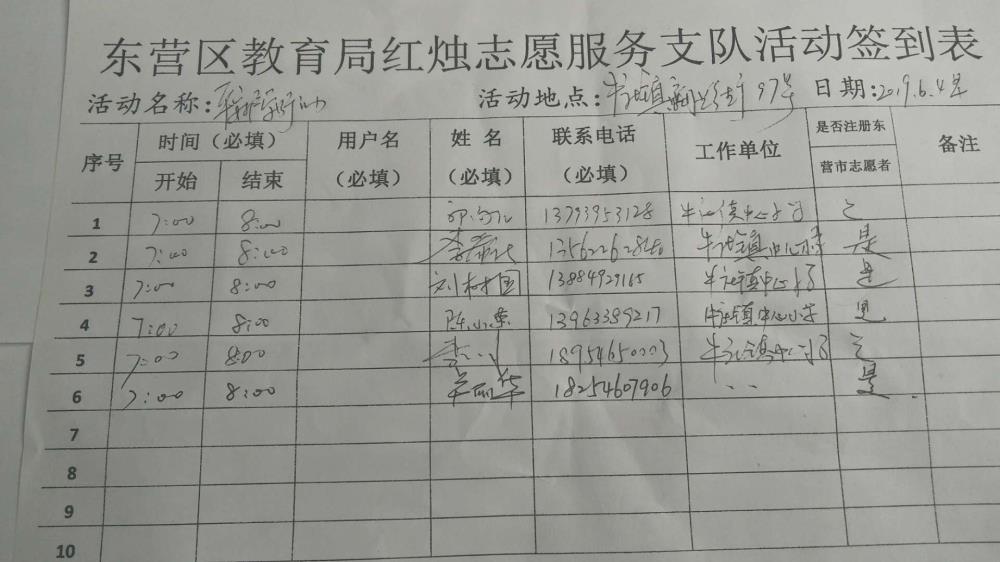 东营区教育局红烛志愿服务支队活动签到表
活动名称: 活动地点: 牛庄镇 97号 日期:2019.6.4号
序号 时间（必填） 用户名（必填） 姓名（必填） 联系电话（必填） 工作单位 是否注册东营市志愿者 备注
开始 结束
1 7:00 8:00 13793953128 牛庄镇中心小学 是
2 7:00 8:00 牛庄镇中心小学 是
3 7:00 8:00 刘树国 13884927165 牛庄镇中心小学 是
4 7:00 8:00 陈小荣 13963389217 牛庄镇中心小学 是
5 7:00 8:00 李 18954650003 牛庄镇中心小学 是
6 7:00 8:00 羊丽华 18254607906 〃 是
7
8
9
10